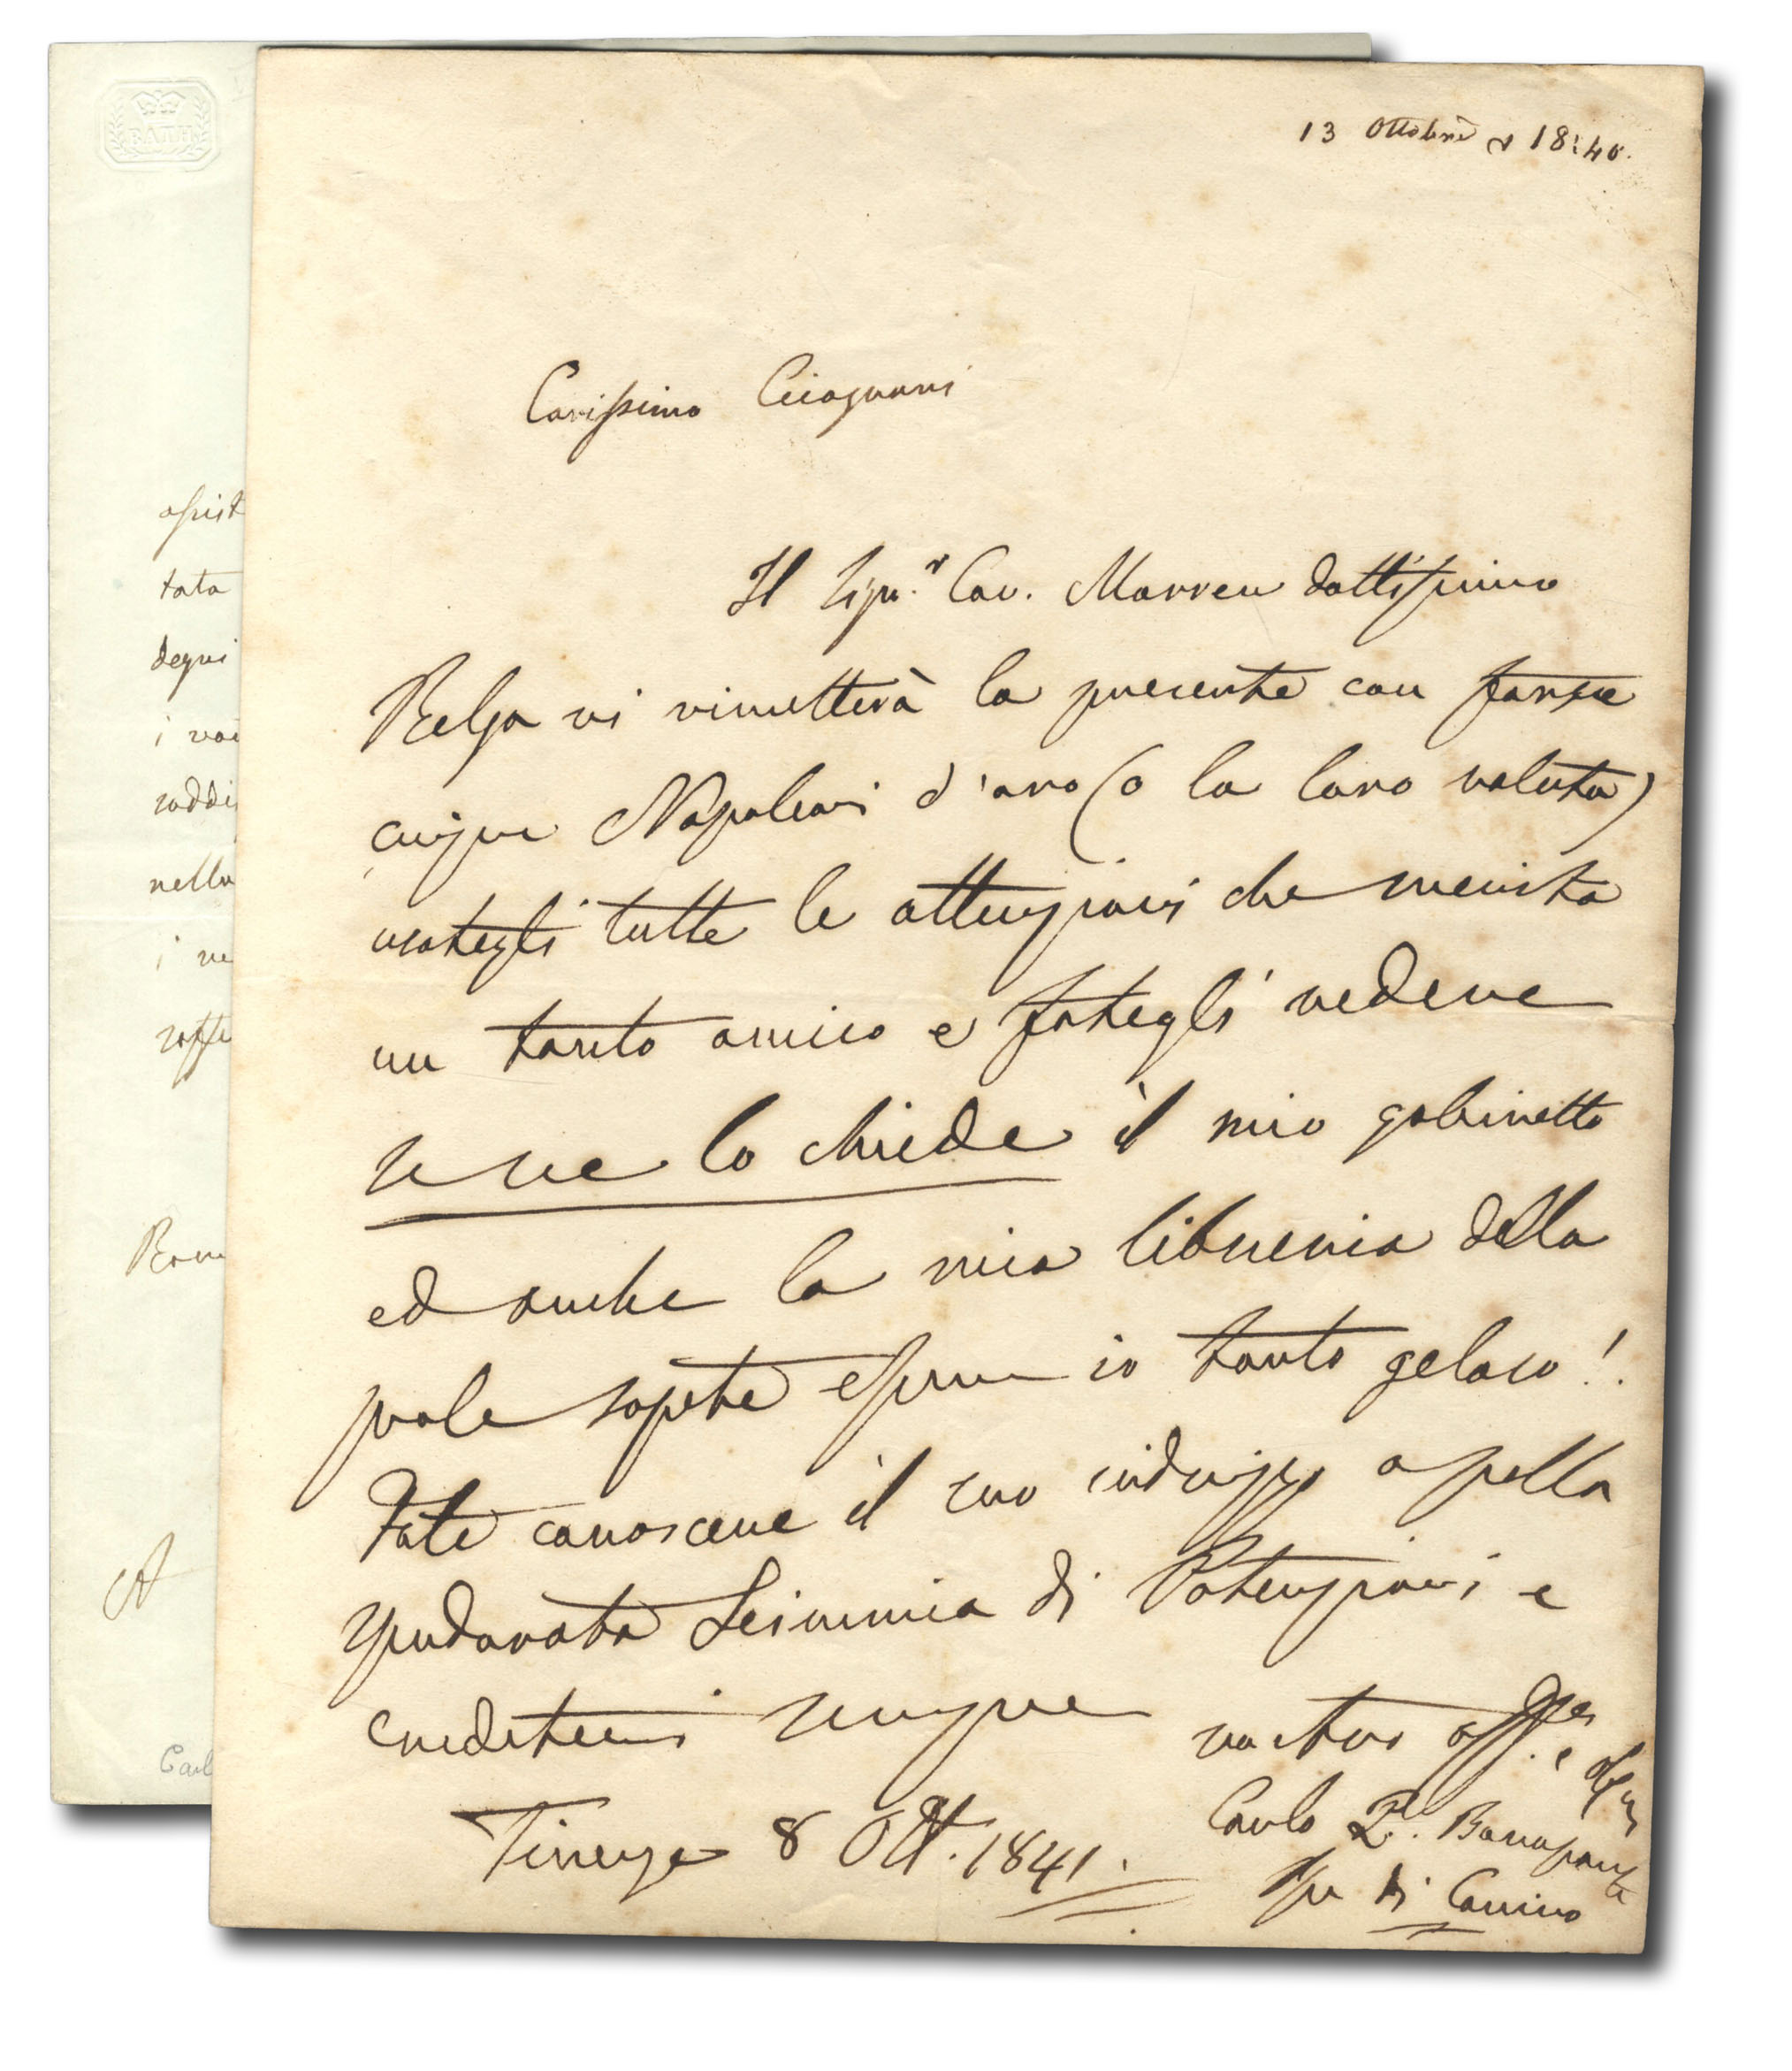 BATH
13 Ottobre 1840.
Carissimo Cicognani
Il Sign.r Cav. Morren dottissimo
Belga vi rimetterà la presente con forse
cinque Napoleoni d'oro (o la loro valuta)
usategli tutte le attenzioni che merita
un tanto amico e fategli vedere
se ve lo chiede il mio gabinetto
ed anche la mia libreria della
quale sapete esserne io tanto geloso!
Fate conoscere il suo indirizzo a quella
spudorata Scimmia di Potenziani e
credetemi sempre
vostro aff.
Carlo L. Bonaparte
Pr di Canino
Firenze 8 Ott. 1841.
assist
tata
degni
i
soddis
nella
i ve
soffe
Rom
A
Carl